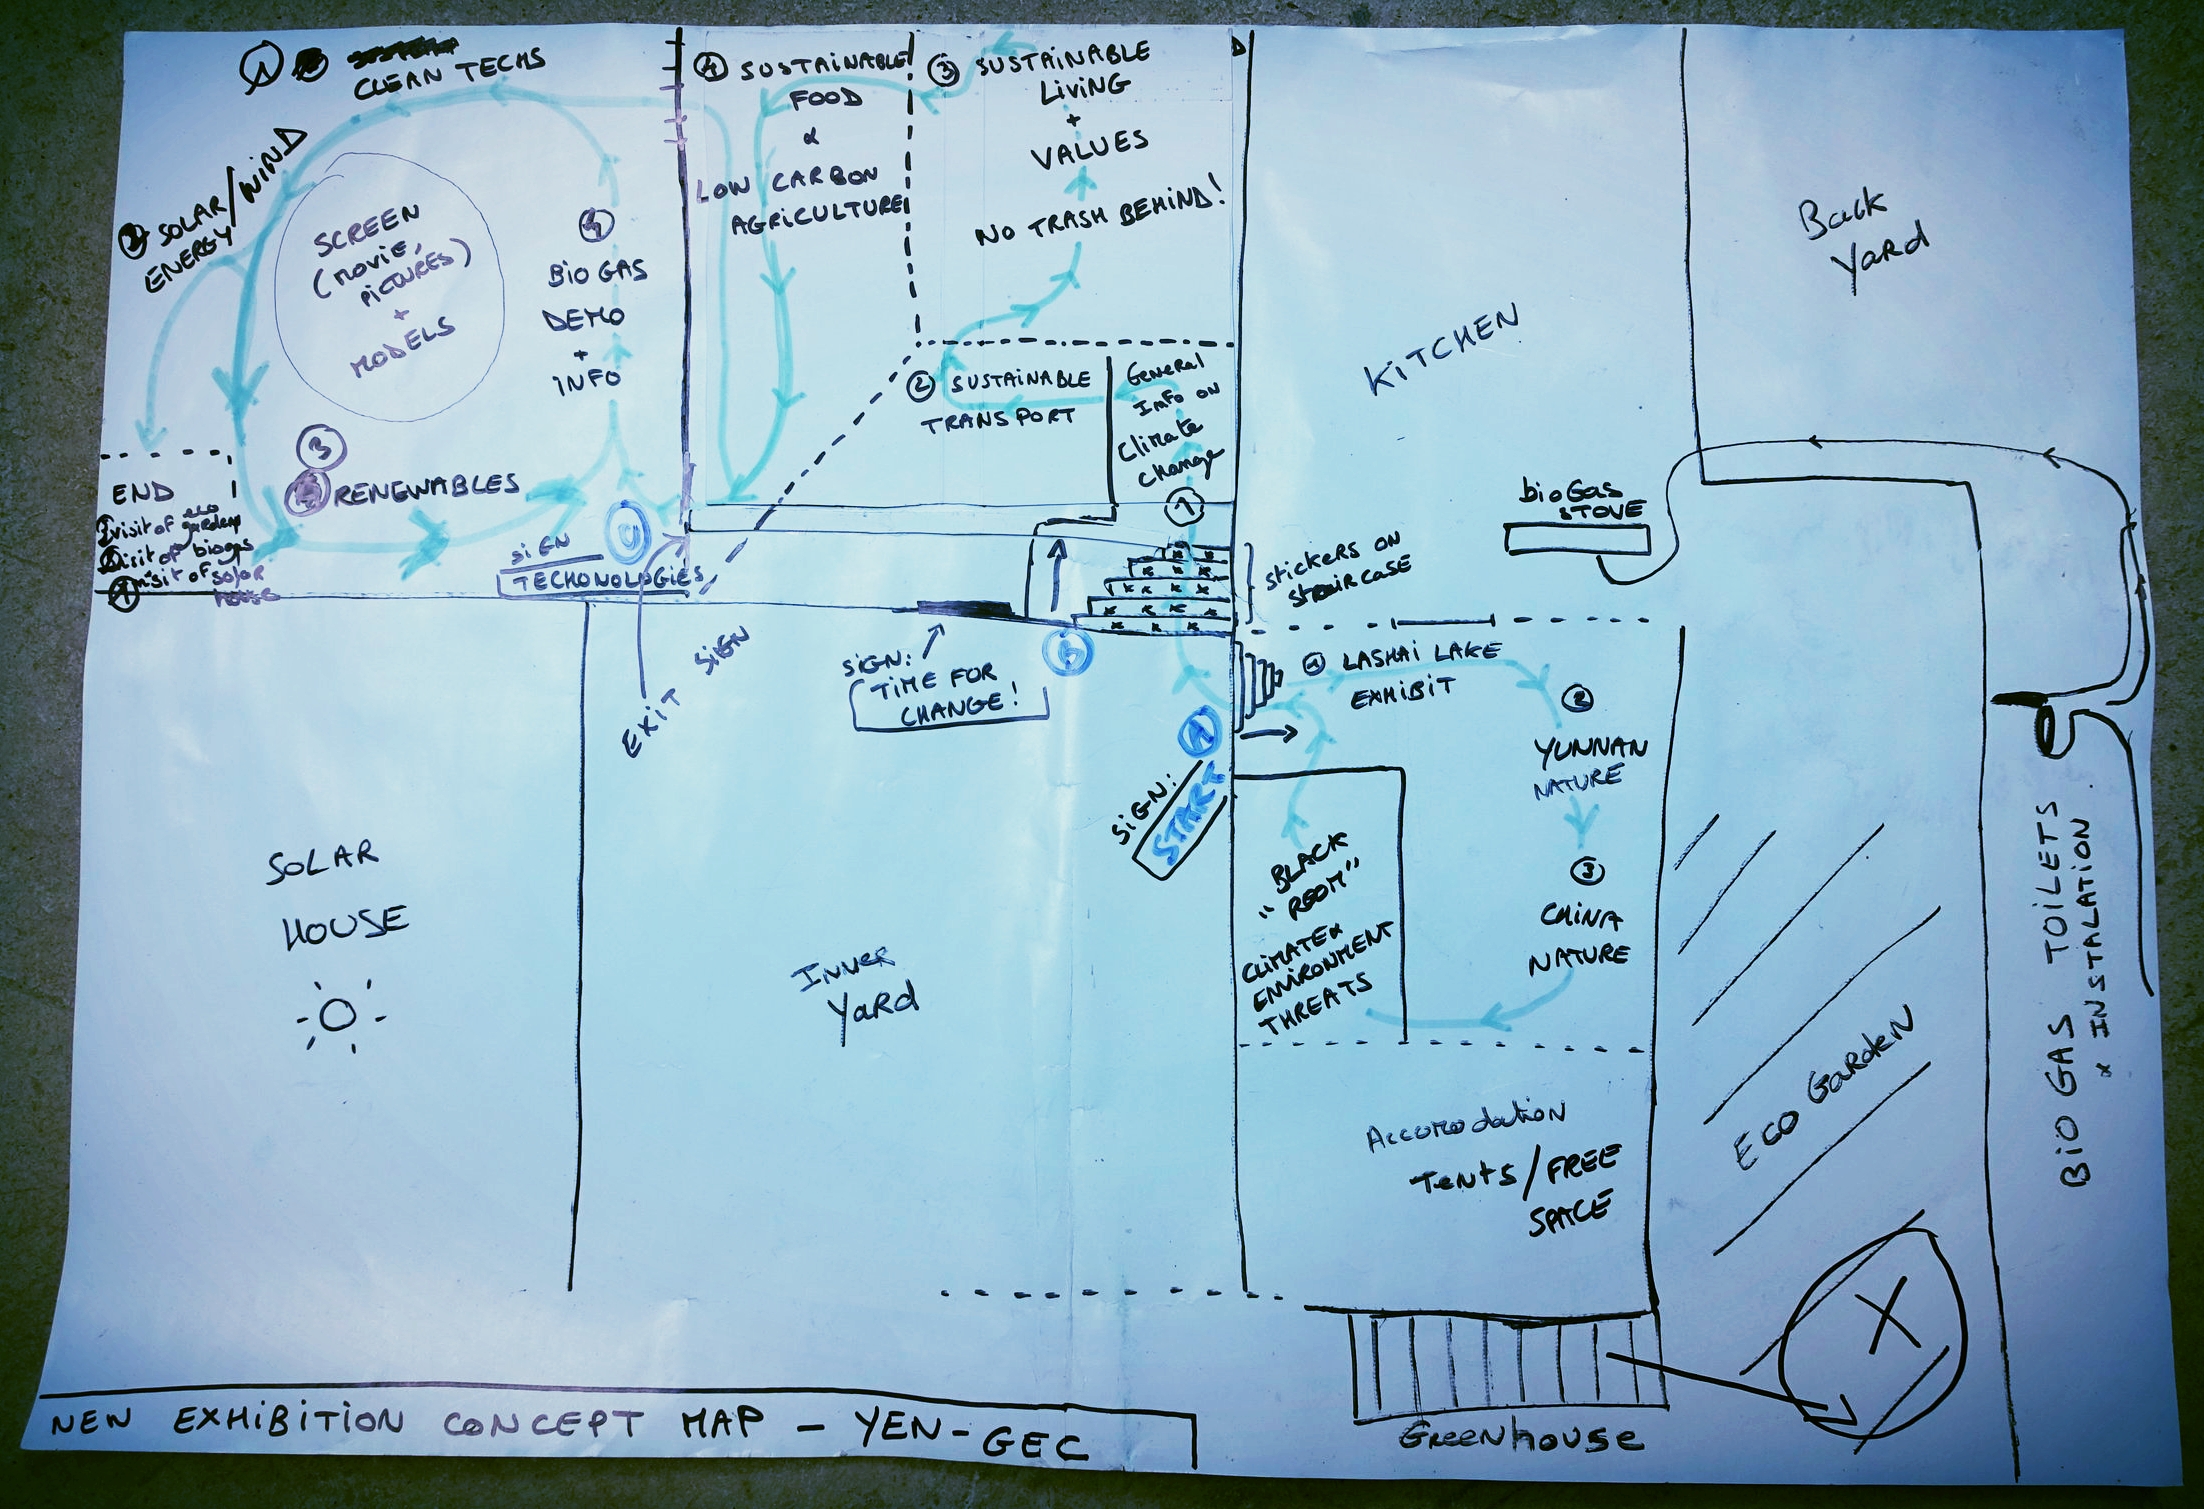 1
CLEAN TECHS
2 SOLAR/WIND
ENERGY
SCREEN
(MOVIE,
PICTURES)
+
MODELS
4
BIO GAS
DEMO
+
INFO
3
RENEWABLES
END
visit of eco
garden
visit of biogas
visit of solar
house
SIGN
TECHONOLOGIES
C
4 SUSTAINABLE
FOOD
&
LOW CARBON
AGRICULTURE
3 SUSTAINABLE
LIVING
+
VALUES
NO TRASH BEHIND!
2 SUSTAINABLE
TRANSPORT
General
Info on
Climate
change
1
EXIT SIGN
SIGN:
TIME FOR
CHANGE!
B
stickers on
staircase
KITCHEN
Back
Yard
bioGas
STOVE
1 LASHAI LAKE
EXHIBIT
2
YUNNAN
NATURE
3
CHINA
NATURE
A
SIGN:
START
"BLACK
ROOM"
CLIMATE &
ENVIRONMENT
THREATS
SOLAR
HOUSE
Inner
Yard
Accomodation
Tents/FREE
SPACE
ECO GARDEN
BIO GAS TOILETS
& INSTALATION
X
Greenhouse
NEW EXHIBITION CONCEPT MAP - YEN-GEC